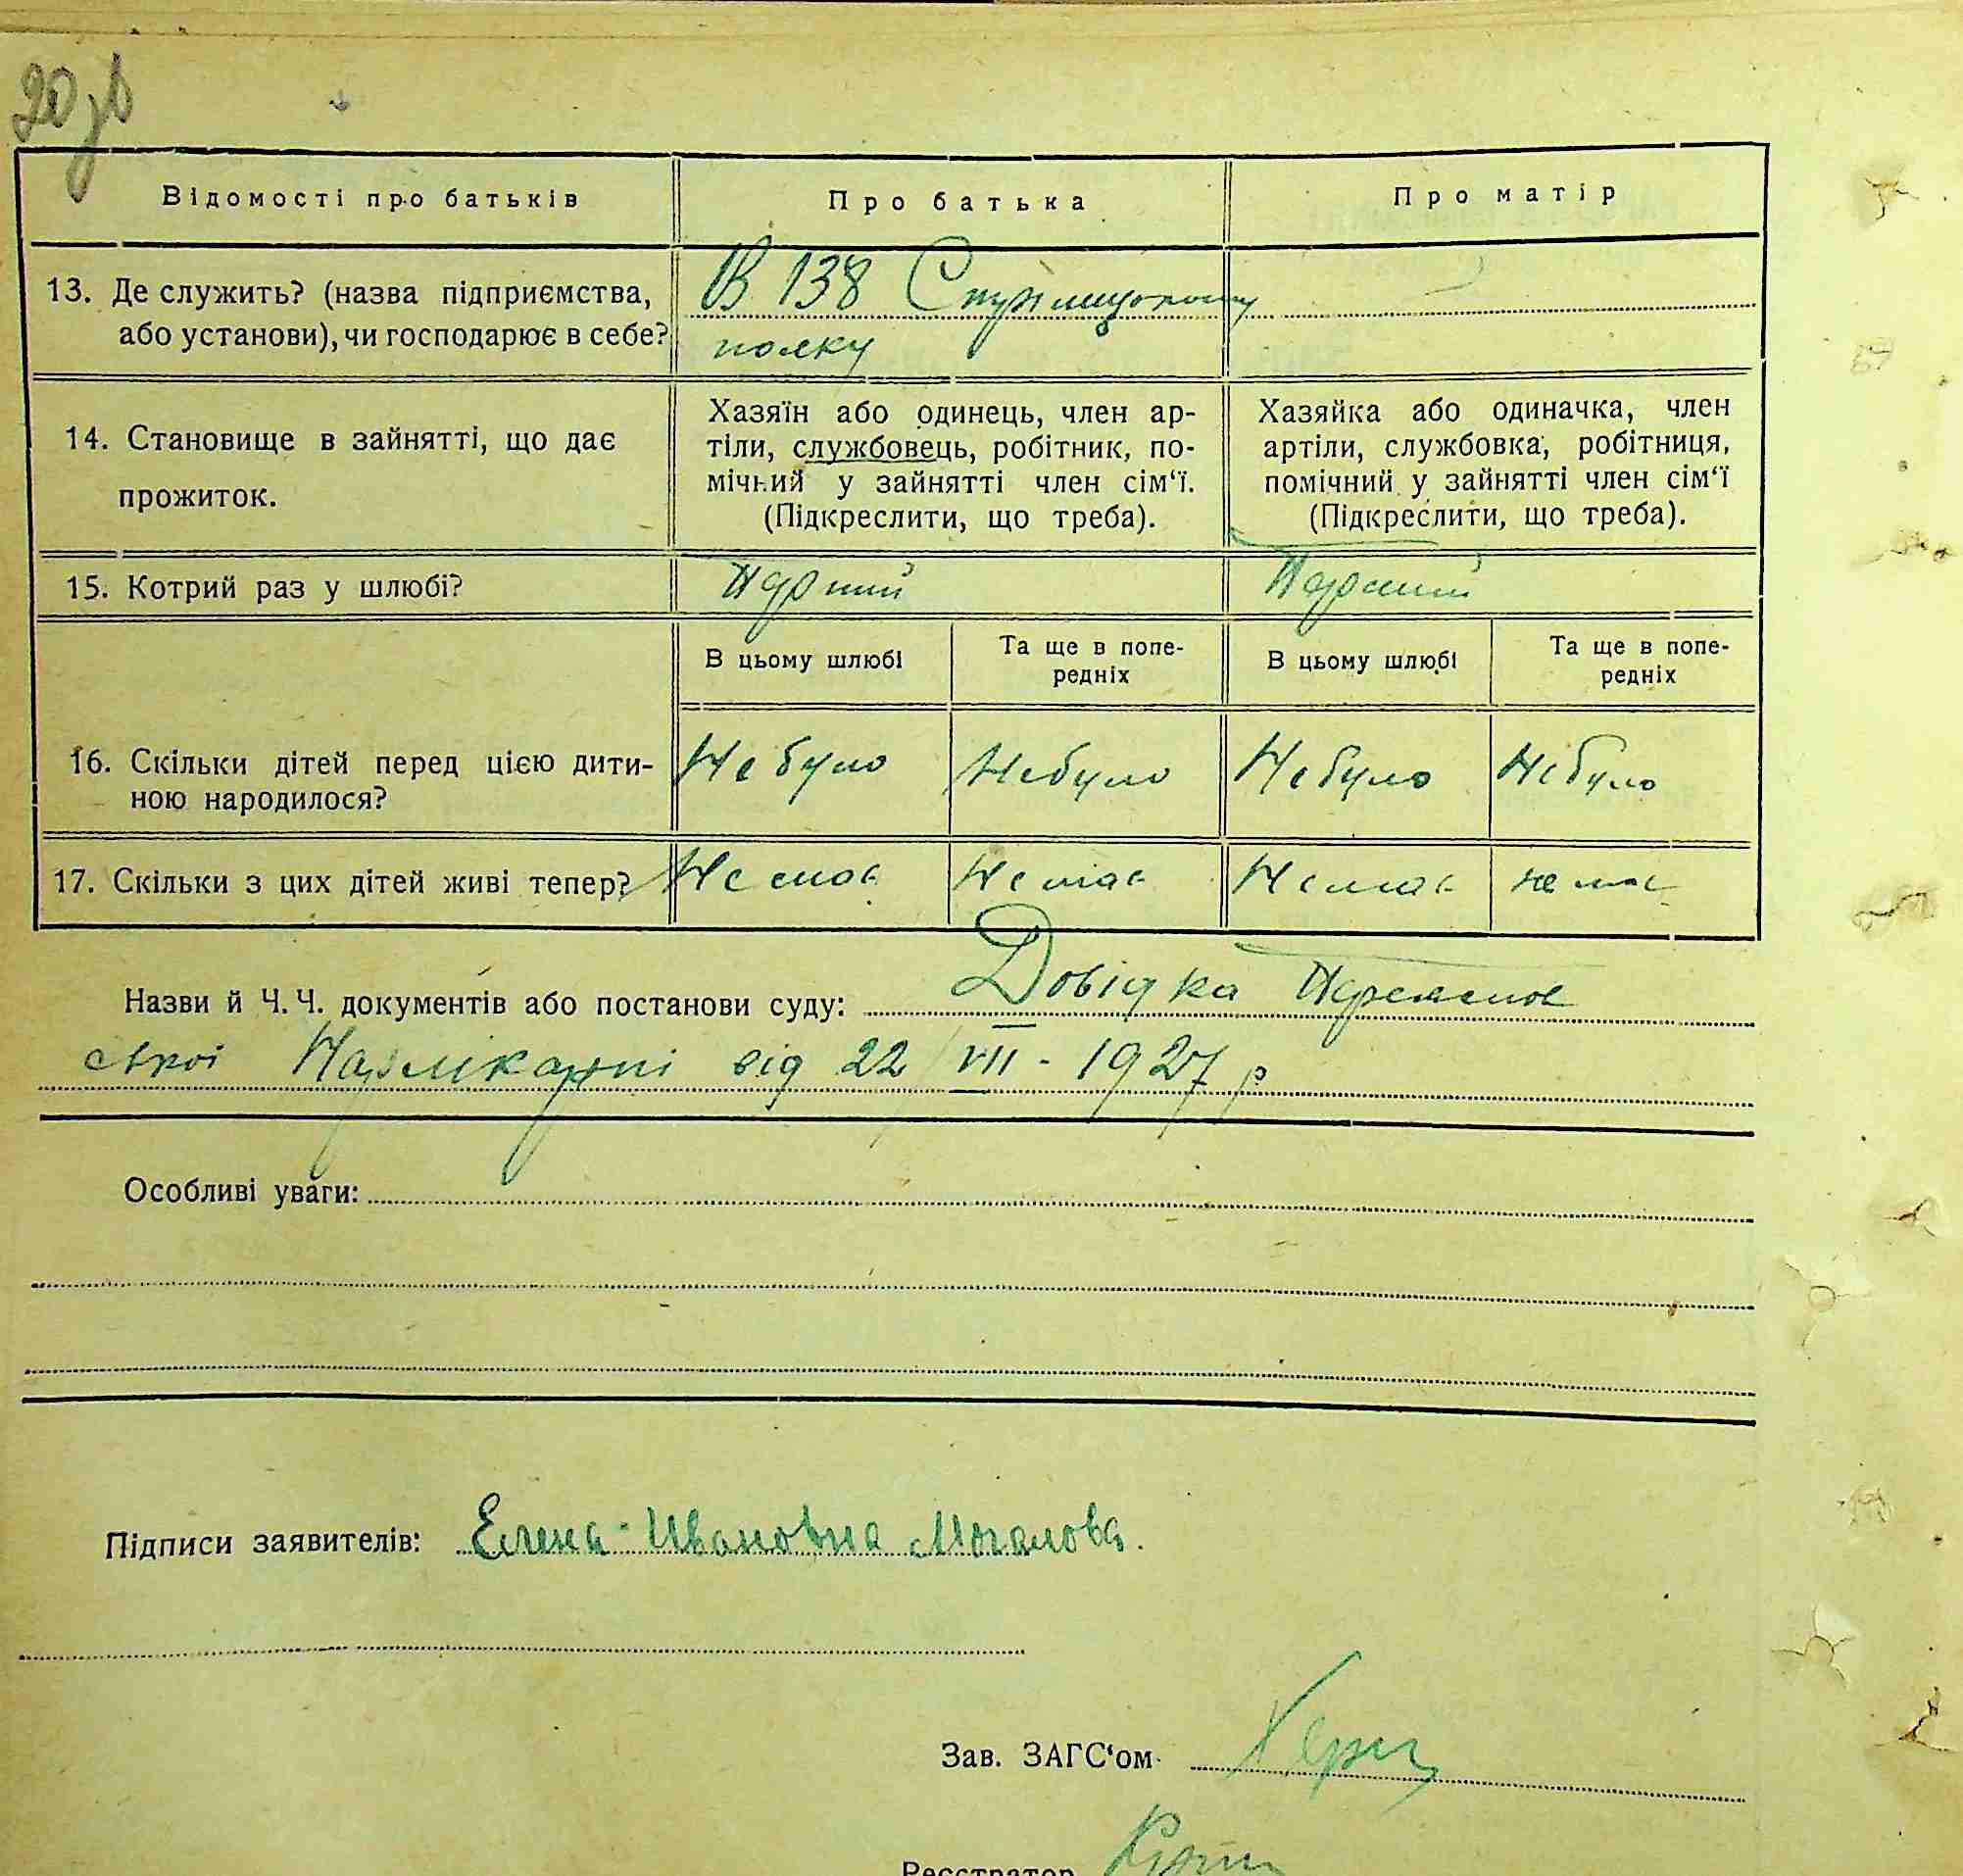 20 зв
Відомості про батьків
Про батька
Про матір
13. Де служить? (назва підприємства,
або установи), чи господарює в себе?
В 138
полку
14. Становище в зайнятті, що дає
прожиток.
Хазяїн або одинець, член ар-
тіли, службовець, робітник, по-
мічний у зайнятті член сім‘ї.
(Підкреслити, що треба).
Хазяйка або одиначка, член
артіли, службовка, робітниця,
помічний у зайнятті член сім‘ї
(Підкреслити, що треба).
15. Котрий раз у шлюбі?
Перший
Перший
В цьому шлюбі
Та ще в попе-
редніх
В цьому шлюбі
Та ще в попе-
редніх
16. Скільки дітей перед цією дити-
ною народилося?
Не було
Не було
Не було
Не було
17. Скільки з цих дітей живі тепер?
Немає
Немає
Немає
немає
Назви й Ч. Ч. документів або постанови суду: Довідка
від 22/VII - 1927 р
Особливі уваги:
Підписи заявителів: Елена Ивановна Могалова.
Зав. ЗАГС‘ом
Реєстратор